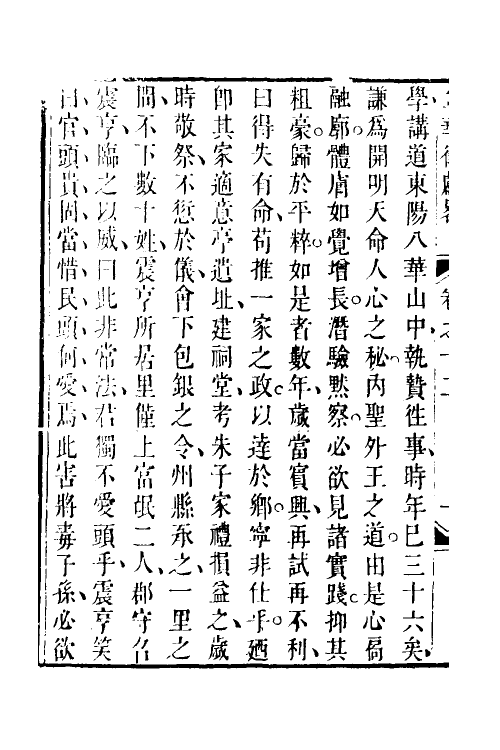 學講道東陽八華山中執贄徃事時年巳三十六矣
謙為開明天命人心之秘內聖外王之道由是心扃
融廓體膚如覺增長潛驗黙察必欲見諸實踐抑其
粗豪歸於平粹如是者數年歲當賓興再試再不利
曰得失有命苟推一家之政以達於鄉寧非仕乎廼
卽其家適意亭遺址建祠堂考朱子家禮損益之歲
時敬祭不愆於儀會下包銀之令州縣承之一里之
間不下數十姓震亨所居里僅上富氓二人郡守召
震亨臨之以威曰此非常法君獨不愛頭乎震亨笑
曰官頭貴固當惜民頭何愛焉此害將毒子孫必欲